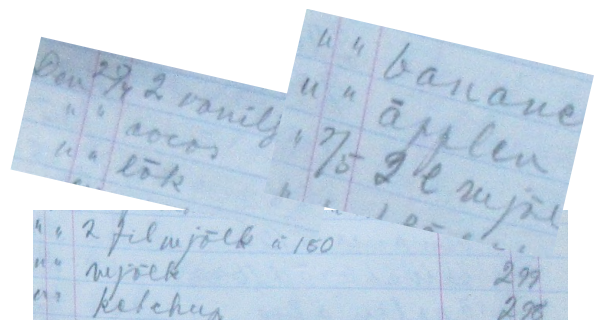 Den 29/4 2 vanilj
" " cocos
" " lök
" " banane
" " äpplen
" 2/5 2 l mjöl
" " 2 filmjölk á 150
" " mjölk 299
" " ketchup 298